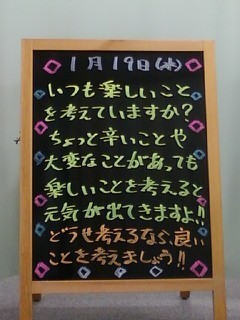 1月19日(水)
いつも楽しいこと
を考えていますか?
ちょっと辛いことや
大変なことがあっても
楽しいことを考えると
元気が出てきますよ!!
どうせ考えるなら、良い
ことを考えましょう!!